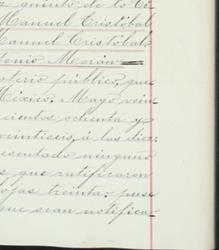 quinto de lo Ci-
Manuel Cristóbal
Manuel Cristóbal,
tonio Morán
terio público, que
México, Mayo vein
cientos ochenta y
veintiseis, á las diez
esentado ninguno
s que ratificaron
ojas treinta: pase
que sean notifica-